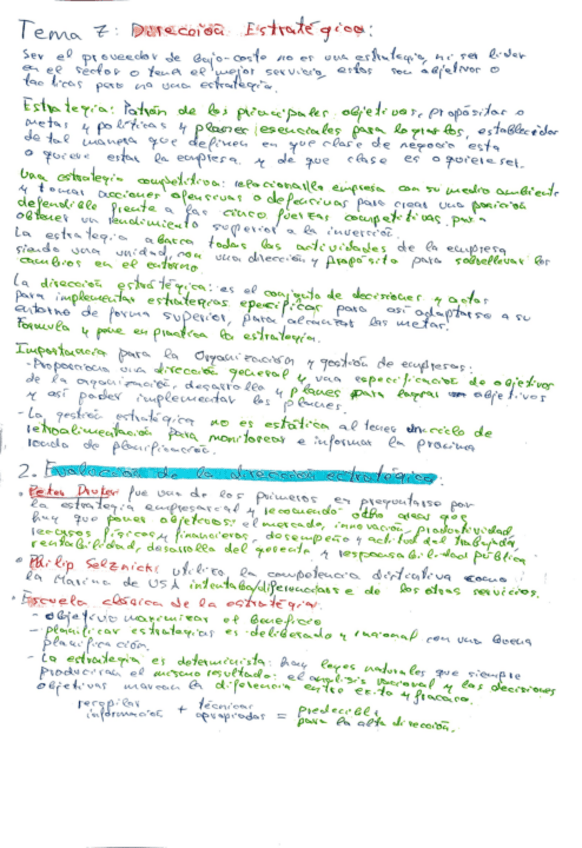 Tema 7: Dirección Estratégica:
Ser el proveedor de bajo-costo no es una estrategia, ni ser lider
en el sector o tener el mejor servicio, estos son objetivos o
tacticas pero no una estrategia.
Estrategia: Patrón de los principales objetivos, propósitos o
metas y políticas y planes esenciales para lograrlos, establecidos
de tal manera que definen en que clase de negocio esta
o quiere estar la empresa y de que clase es o quiere ser.
Una estrategia competitiva: relacionar la empresa con su medio ambiente
y tomar acciones ofensivas o defensivas para crear una posición
defendible frente a las cinco fuerzas competitivas para
obtener un rendimiento superior a la inversión.
La estrategia abarca todas las actividades de la empresa
siendo una unidad, con una dirección y propósito para sobrellevar los
cambios en el entorno.
La dirección estratégica: es el conjunto de decisiones y actos
para implementar estrategias especificas para así adaptarse a su
entorno de forma superior, para alcanzar las metas.
Formula y pone en practica la estrategia.
Importancia para la Organización y gestión de empresas:
-Proporciona una dirección general y una especificación de objetivos
de la organización, desarrollo y planes para lograr objetivos
y así poder implementar los planes.
- La gestión estratégica no es estática al tener un ciclo de
retroalimentación para monitorear e informar la proxima
ronda de planificación.
2. Evolución de la dirección estratégica:
• Peter Druker fue uno de los primeros en preguntarse por
la estrategia empresarial y recomendó otho areas que
hay que poner objetivos: el mercado, innovación, productividad,
recursos físicos y financieros, desempeño y actitud del trabajador,
rentabilidad, desarrollo del gerente y responsabilidad pública
• Philip Selznick: utilizo la competencia distintiva como
la Marina de USA intentaba diferenciarse de los otros servicios.
• Escuela clásica de la estratégia:
- Objetivo maximizar el beneficio
- planificar estrategias es deliberado y racional con una buena
planificación.
- La estrategia es determinista: hay leyes naturales que siempre
produciran el mismo resultado: el analisis racional y las decisiones
objetivas marcan la diferencia entre exito y fracaso.
recopilar información + técnicas apropiadas = predecible para la alta dirección.